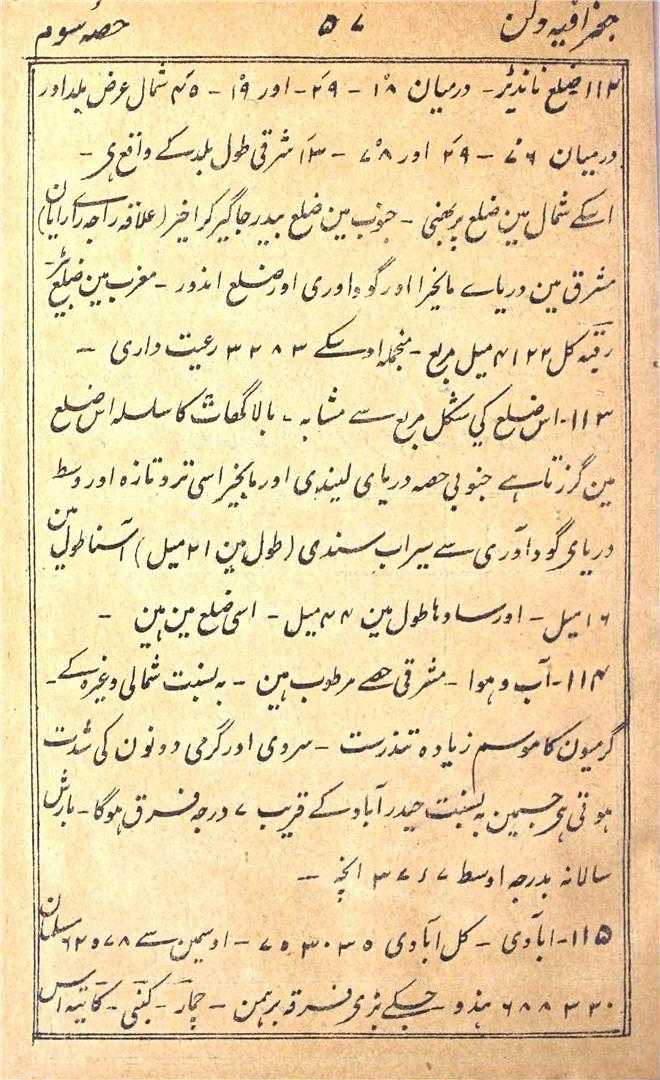 جغرافیہ دکن ۵۷ حصہ سوم
۱۱۲ ضلع نانڈیڑ۔ درمیان ۱۸ - ۲۹ - اور ۱۹ - ۴۵ شمال عرض بلد اور
درمیان ۷۶ - ۲۹ اور ۷۸ - ۱۳ شرقی طول بلد کے واقع ہی۔
اسکے شمال مین ضلع پربھنی۔ جنوب مین ضلع بیدر جاگیر کراخیز (علاقہ راجہ رائرایان)
مشرق مین دریاے مانجرا اور گوداوری اور ضلع اندور۔ مغرب مین ضلع بیڑ۔
رقبہ کل ۴۱۲۲ میل مربع۔ منجملہ اوسکے ۳۲۸۳ رعیت واری۔
۱۱۳۔ اس ضلع کی شکل مربع سے مشابہ۔ بالاگھاٹ کا سلسلہ اس ضلع
مین گزرتا ہے جنوبی حصہ دریای لیندی اور مانجرا سی تروتازہ اور وسط
دریای گوداوری سے سیراب سندی (طول مین ۲۱ میل) آسنا طول مین
۱۶ میل۔ اور سادہا طول مین ۴۴ میل۔ اسی ضلع مین ہین۔
۱۱۴۔ آب و ہوا۔ مشرقی حصے مرطوب ہین۔ بہ نسبت شمالی وغیرہ کے۔
گرمیون کا موسم زیادہ تندرست۔ سردی اور گرمی دونون کی شدت
ہوتی ہی جسمین بہ نسبت حیدرآباد کے قریب ۷ درجہ فرق ہوگا۔ بارش
سالانہ بدرجہ اوسط ۳۷٫۶۷ انچہ۔
۱۱۵۔ آبادی۔ کل آبادی ۷۵۳۰۳۵۔ اوسمین سے ۶۲۵۷۸ مسلمان
۶۸۸۳۳۰ ہندو جسکے بڑی فرقہ برہمن۔ چمار۔ کنبی۔